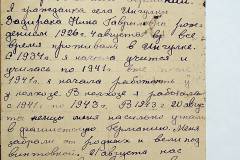 Я гражданка села Ингулка
Задирака Нина Гавриловна рож
дением 1926 г. 4 августа все
время проживала в Ингулке.
В 1934 г. я начала учится и
училась по 1941 г.
1941 г. я начала работать у
колхозе. В колхозе я работала
с 1941 г. по 1943 г. В 1943 г 20 авгус
та немцы меня насильно угнали
в фашистскую Германию. Меня
забрали от родных и вели под
винтовкой. 21 августа нас